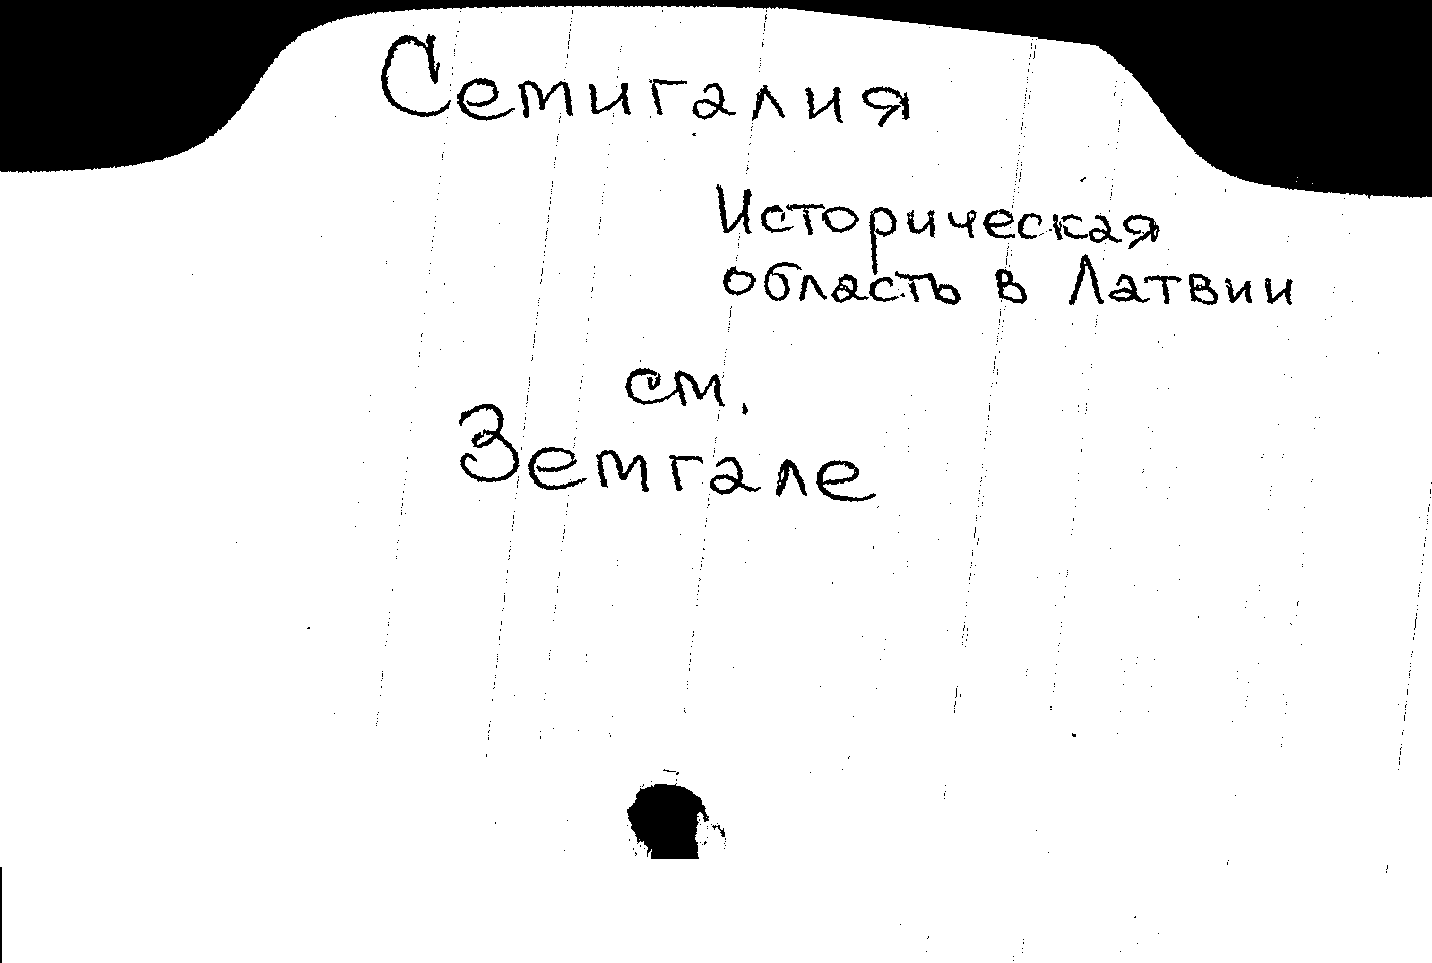 Семигалия
Историческая
область в Латвии
см.
Земгале